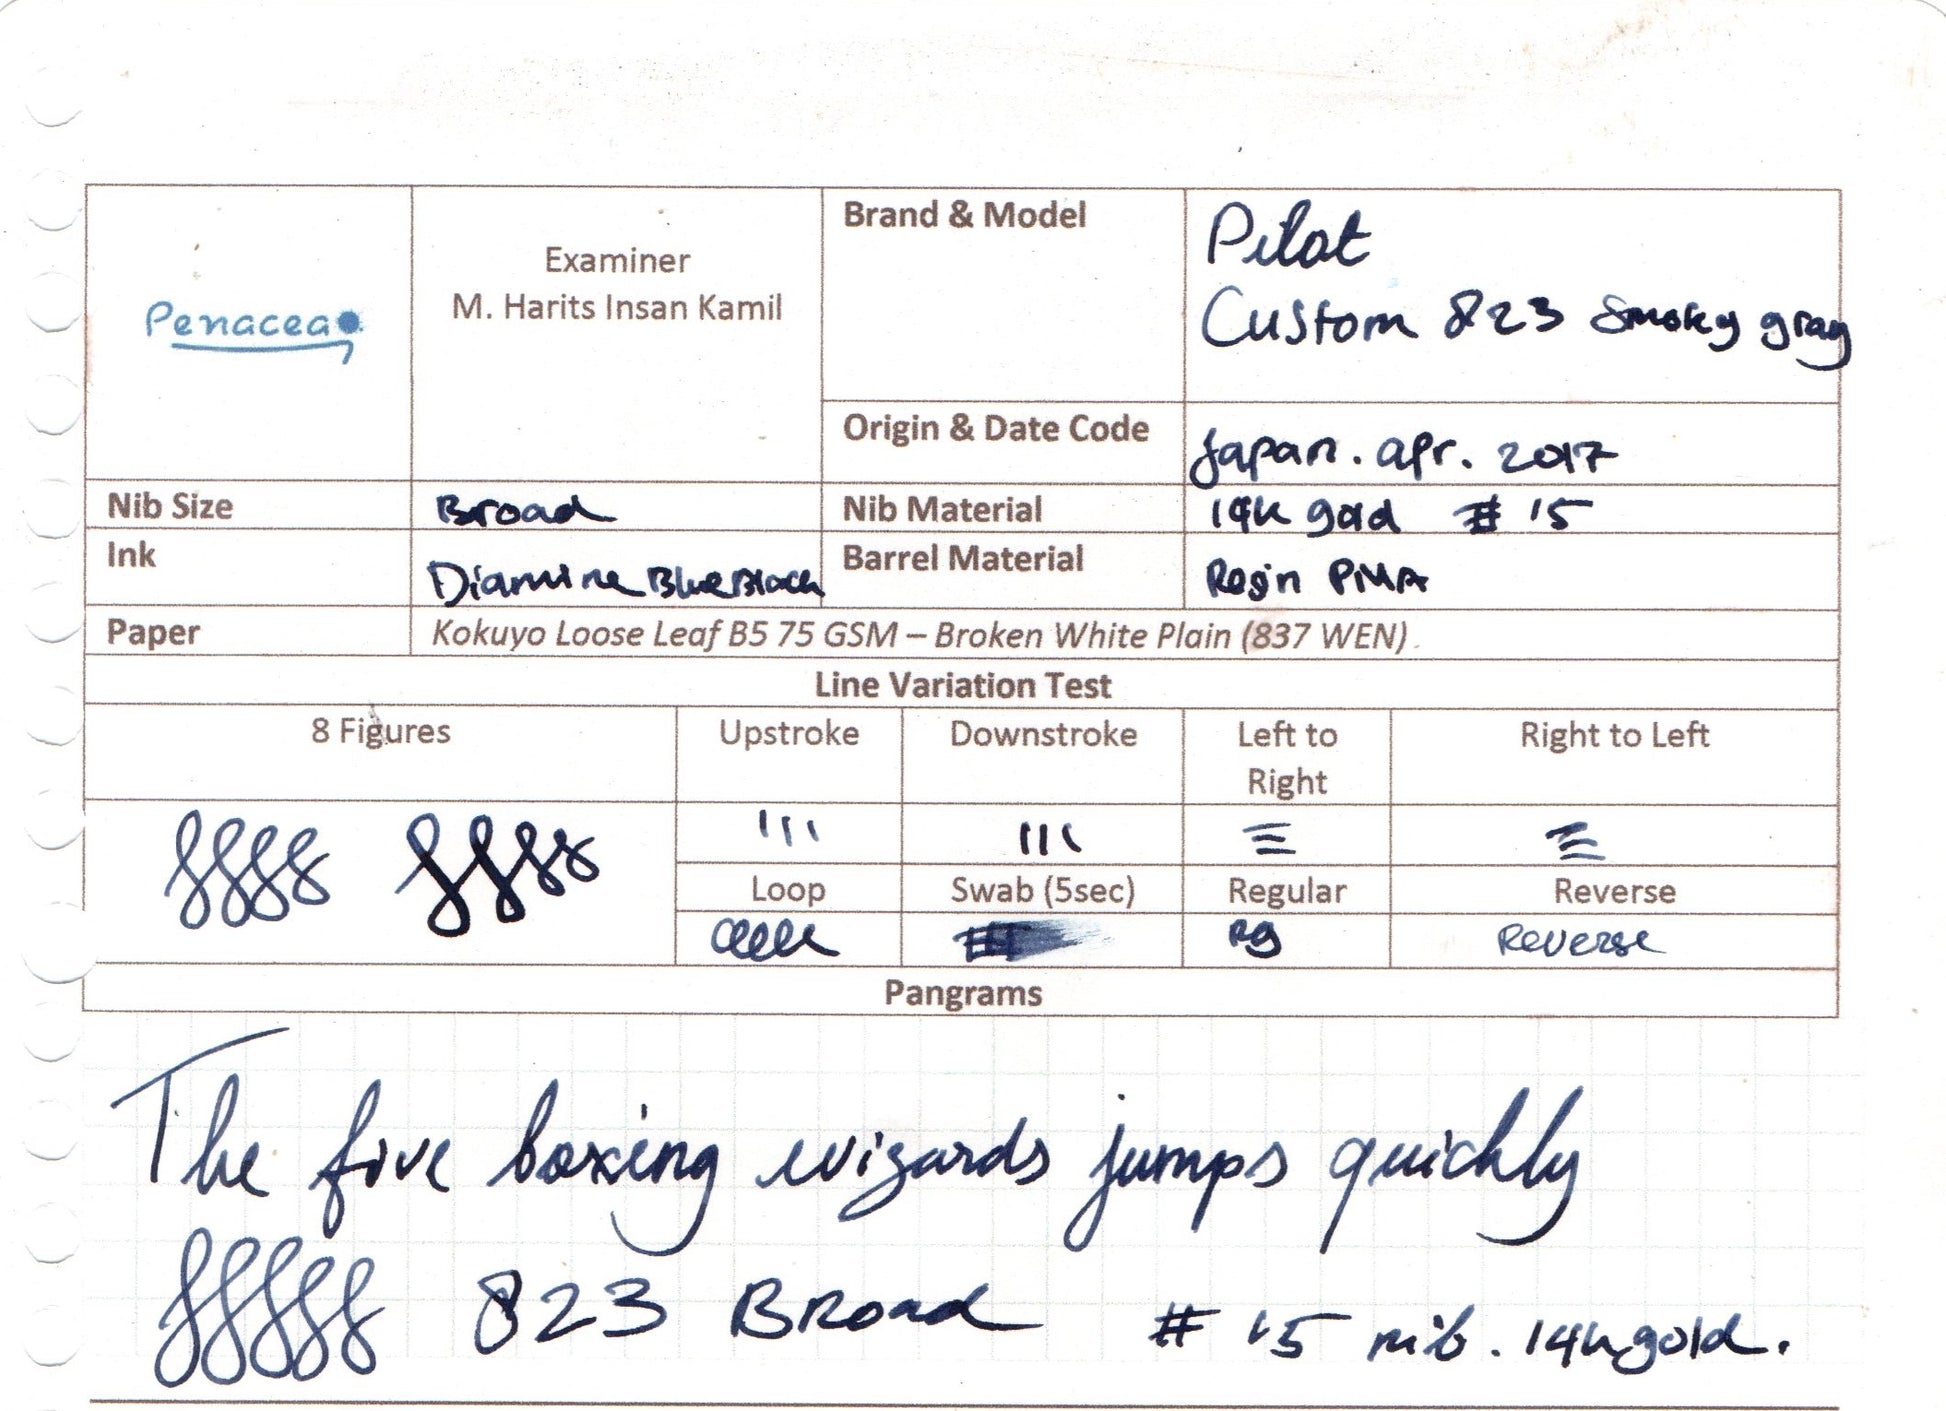 Penacea
Examiner
M. Harits Insan Kamil
Brand & Model
Pilot
Custom 823 Smoky gray
Origin & Date Code
Japan. apr. 2017
Nib Size
Broad
Nib Material
14k gold # 15
Ink
Diamine BlueBlack
Barrel Material
Resin PMMA
Paper
Kokuyo Loose Leaf B5 75 GSM – Broken White Plain (837 WEN)
Line Variation Test
8 Figures
Upstroke
Downstroke
Left to
Right
Right to Left
Loop
Swab (5sec)
Regular
Reverse
Rg
Reverse
Pangrams
The five boxing wizards jumps quickly
823 Broad # 15 nib. 14k gold.